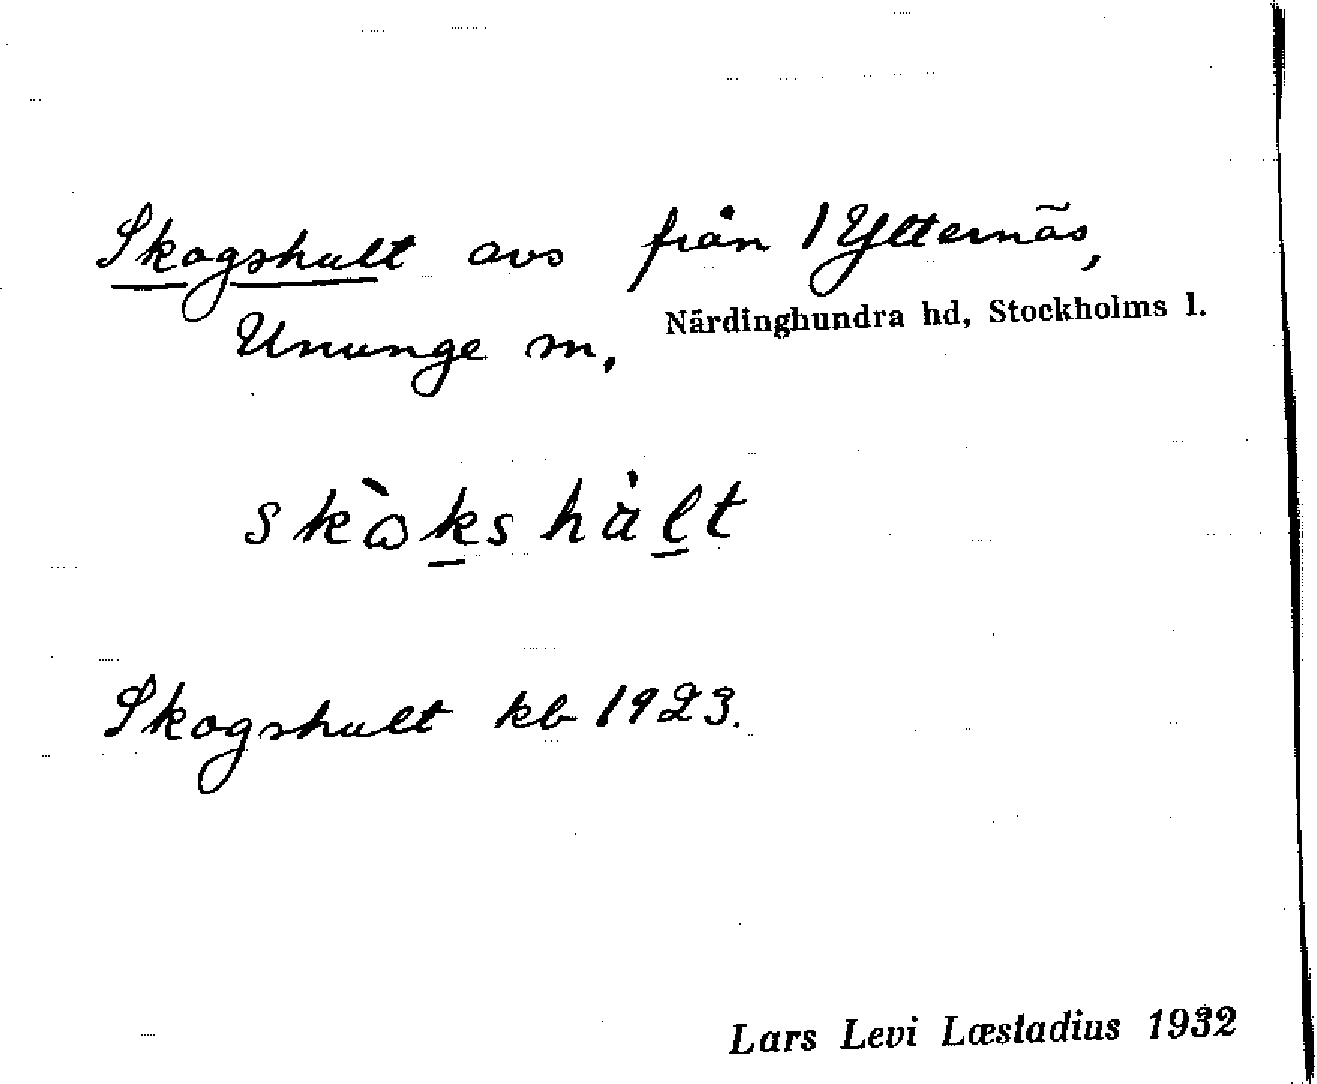 Skogshult avs från 1 Ytternäs,
Närdinghundra hd, Stockholms l.
Ununge sn,
skòkshàlt
Skogshult kb 1923.
Lars Levi Læstadius 1932